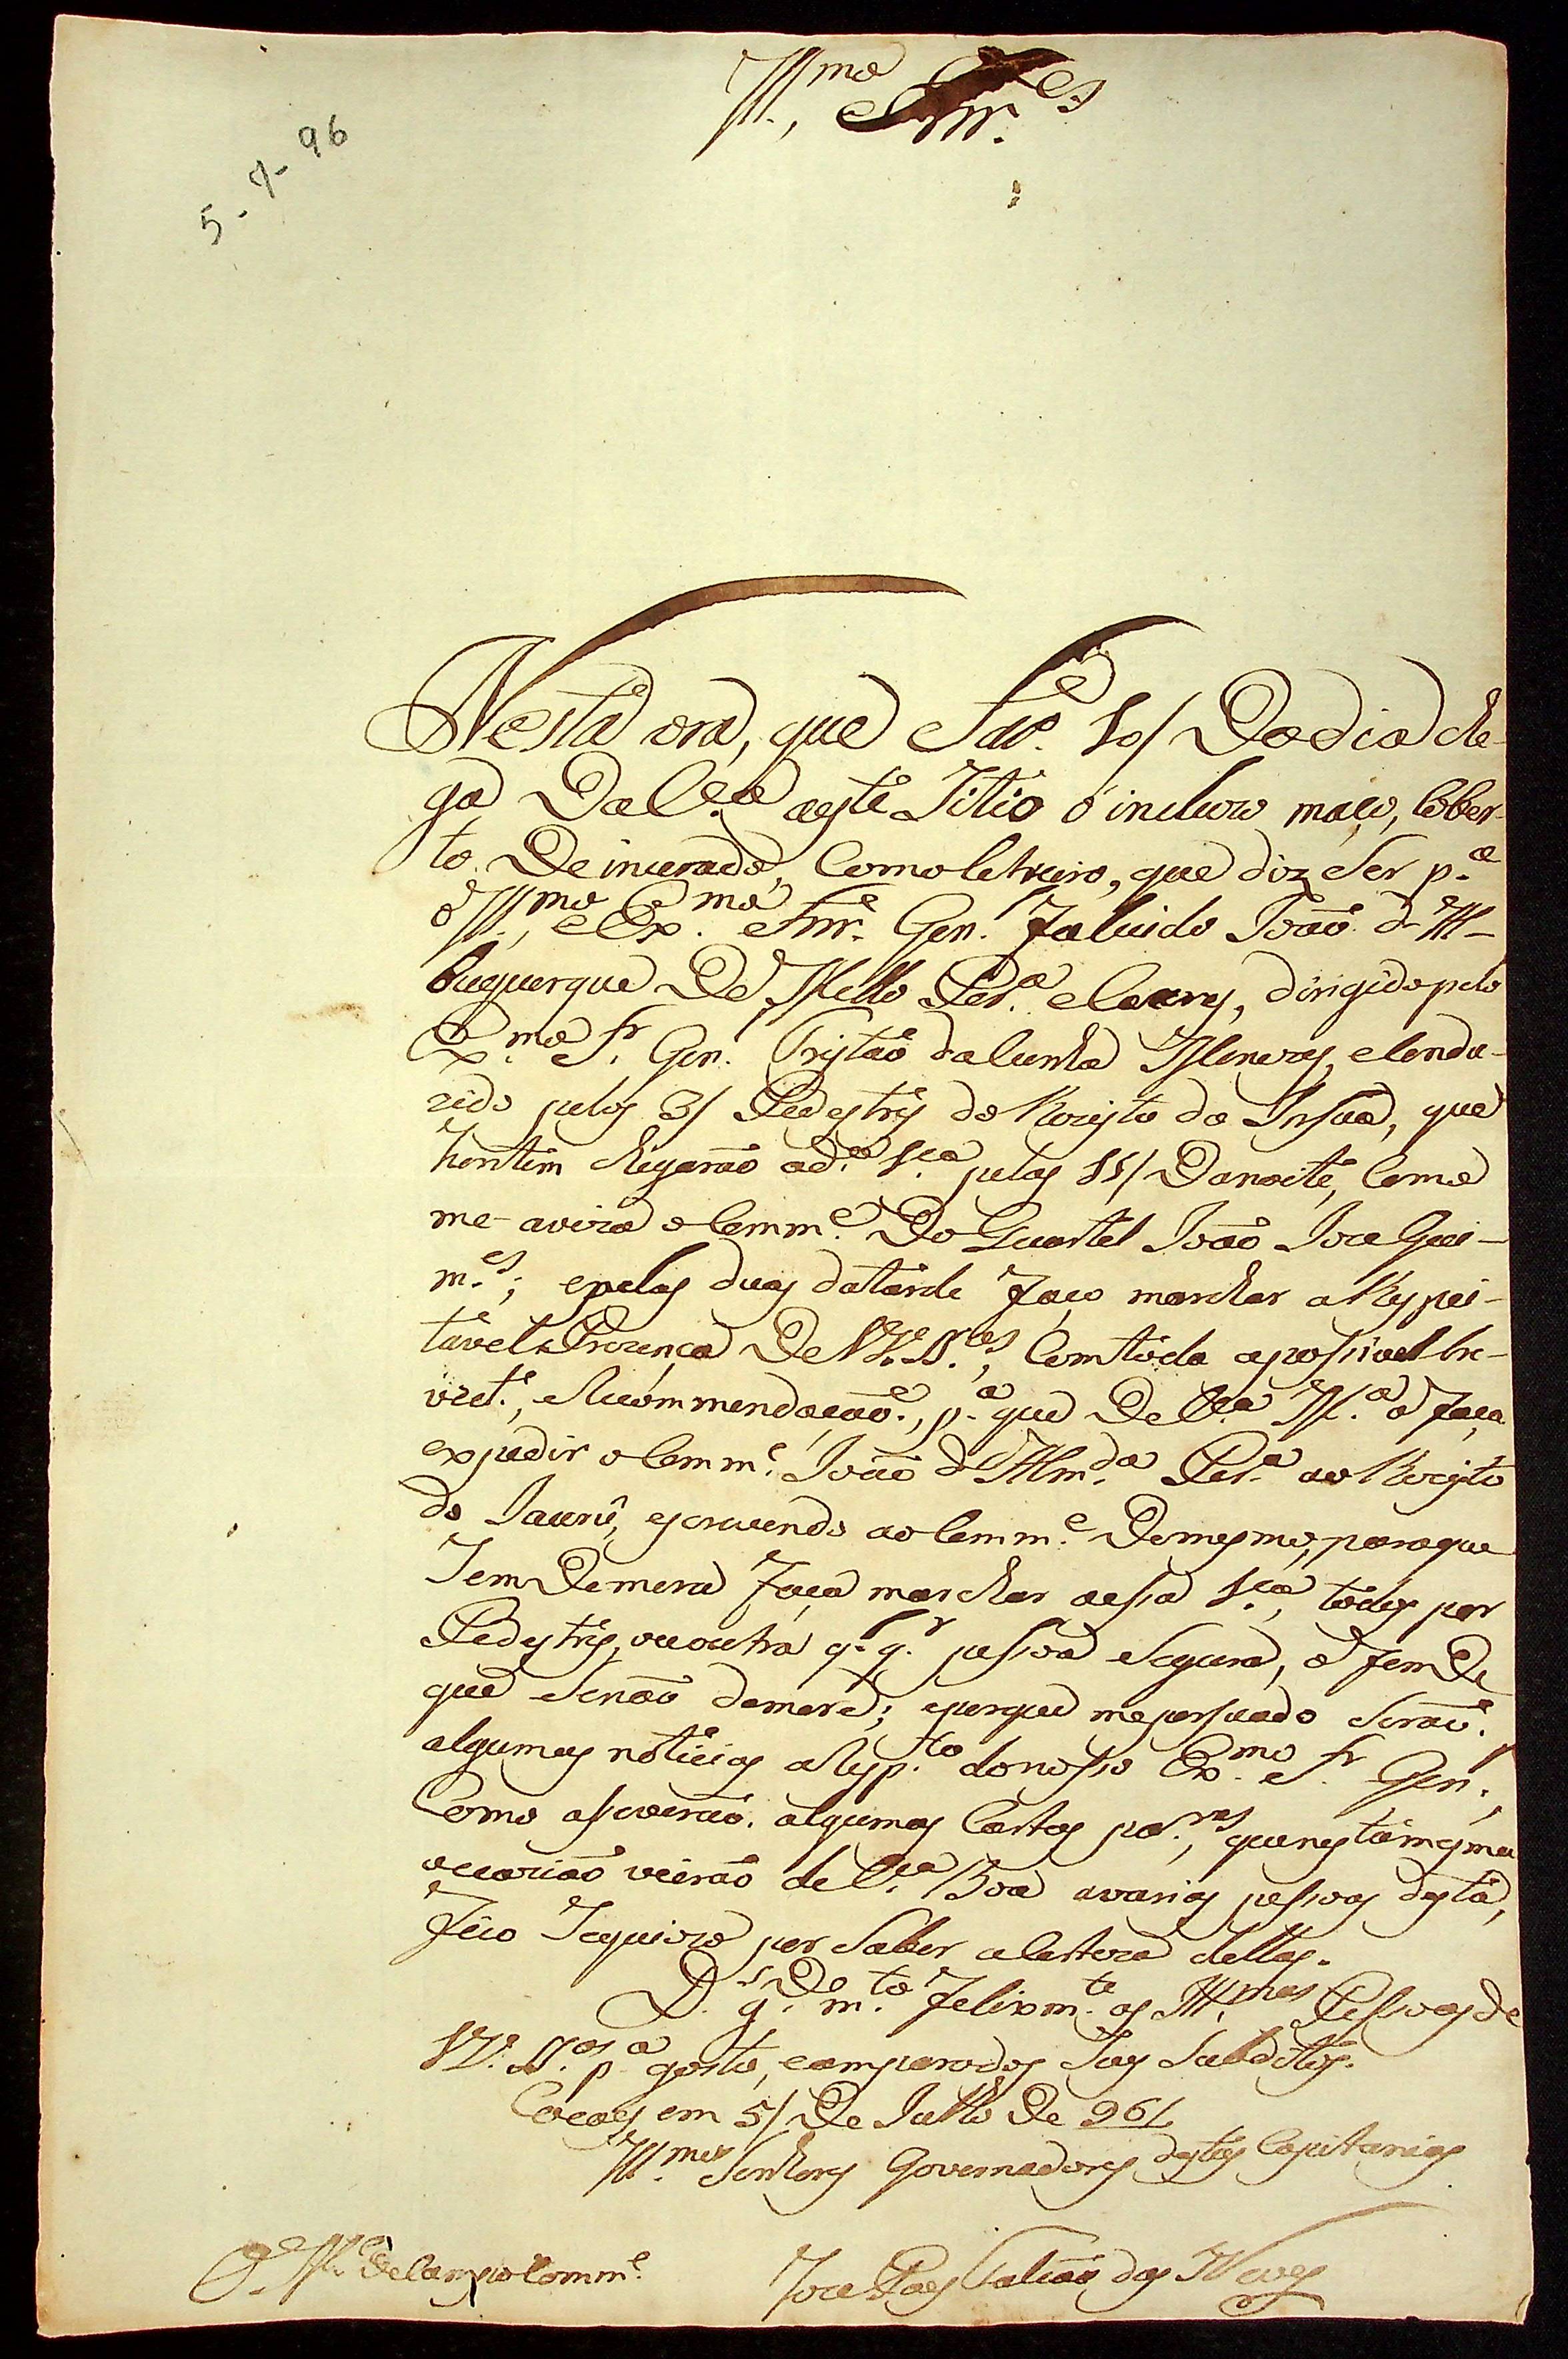 Ill.mos Snr.es
5-7-96
Nesta ora, que São 10/ Do dia che-
ga Da V.a aeste Sitio o incluzo maço, Cober-
to De incerado, Comoletreiro, que diz Ser p.a
o Ill.mo, e Ex.mo Snr. Gen.l falecido João d'Al-
buquerque De Mello Per.a eCaceres, dirigido pelo
Ex.mo Sr. Gen.l Tristão daCunha Menezes, eCondu-
zido pelos 3/ Pedestres do Rezisto da Insua, que
hontem chegarão ad.a V.a pelas 11/ Danoite, Como
me aviza o Comm.e Do Quartel João Joze Gui-
m.es; epelas duas datarde faço marchar aRespei-
tavel Prezença De VV.SS.as, Comtoda apossivel bre-
vid.e, eRecommendação, p.a que De V.a M.a o faça
expedir o Comm.e João d'Alm.da Per.a ao Rezisto
do Jaurú, escrevendo ao Comm.e Domesmo, paraque
Sem Demora faça marchar aessa V.a, todos por
Pedestres, ououtra q.l q.r pessoa Segura, a fim De
que Senão demore; eporque mepersuado Serão
algumas noticias aResp.to donosso Ex.mo Sr. Gen.l,
Como asseverão algumas Cartas par.es, quenestamesma
occazião vierão de V.a Boa avarias pessoas desta,
fico Sequiozo por Saber aCerteza dellas.
D.s g.De m.tos felizm.te as Ill.mas Pessoas de
VV. SS.as p.a gosto, eamparodos Seus Subditos.
Cocaes em 5/ De Julho De 96/
Ill.mos Senhores Governadores destas Capitanias
O M.e deCampo Comm.e
Joze Paes Falcão das Neves